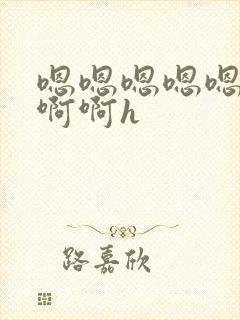 嗯嗯嗯嗯嗯
啊啊h
路嘉欣